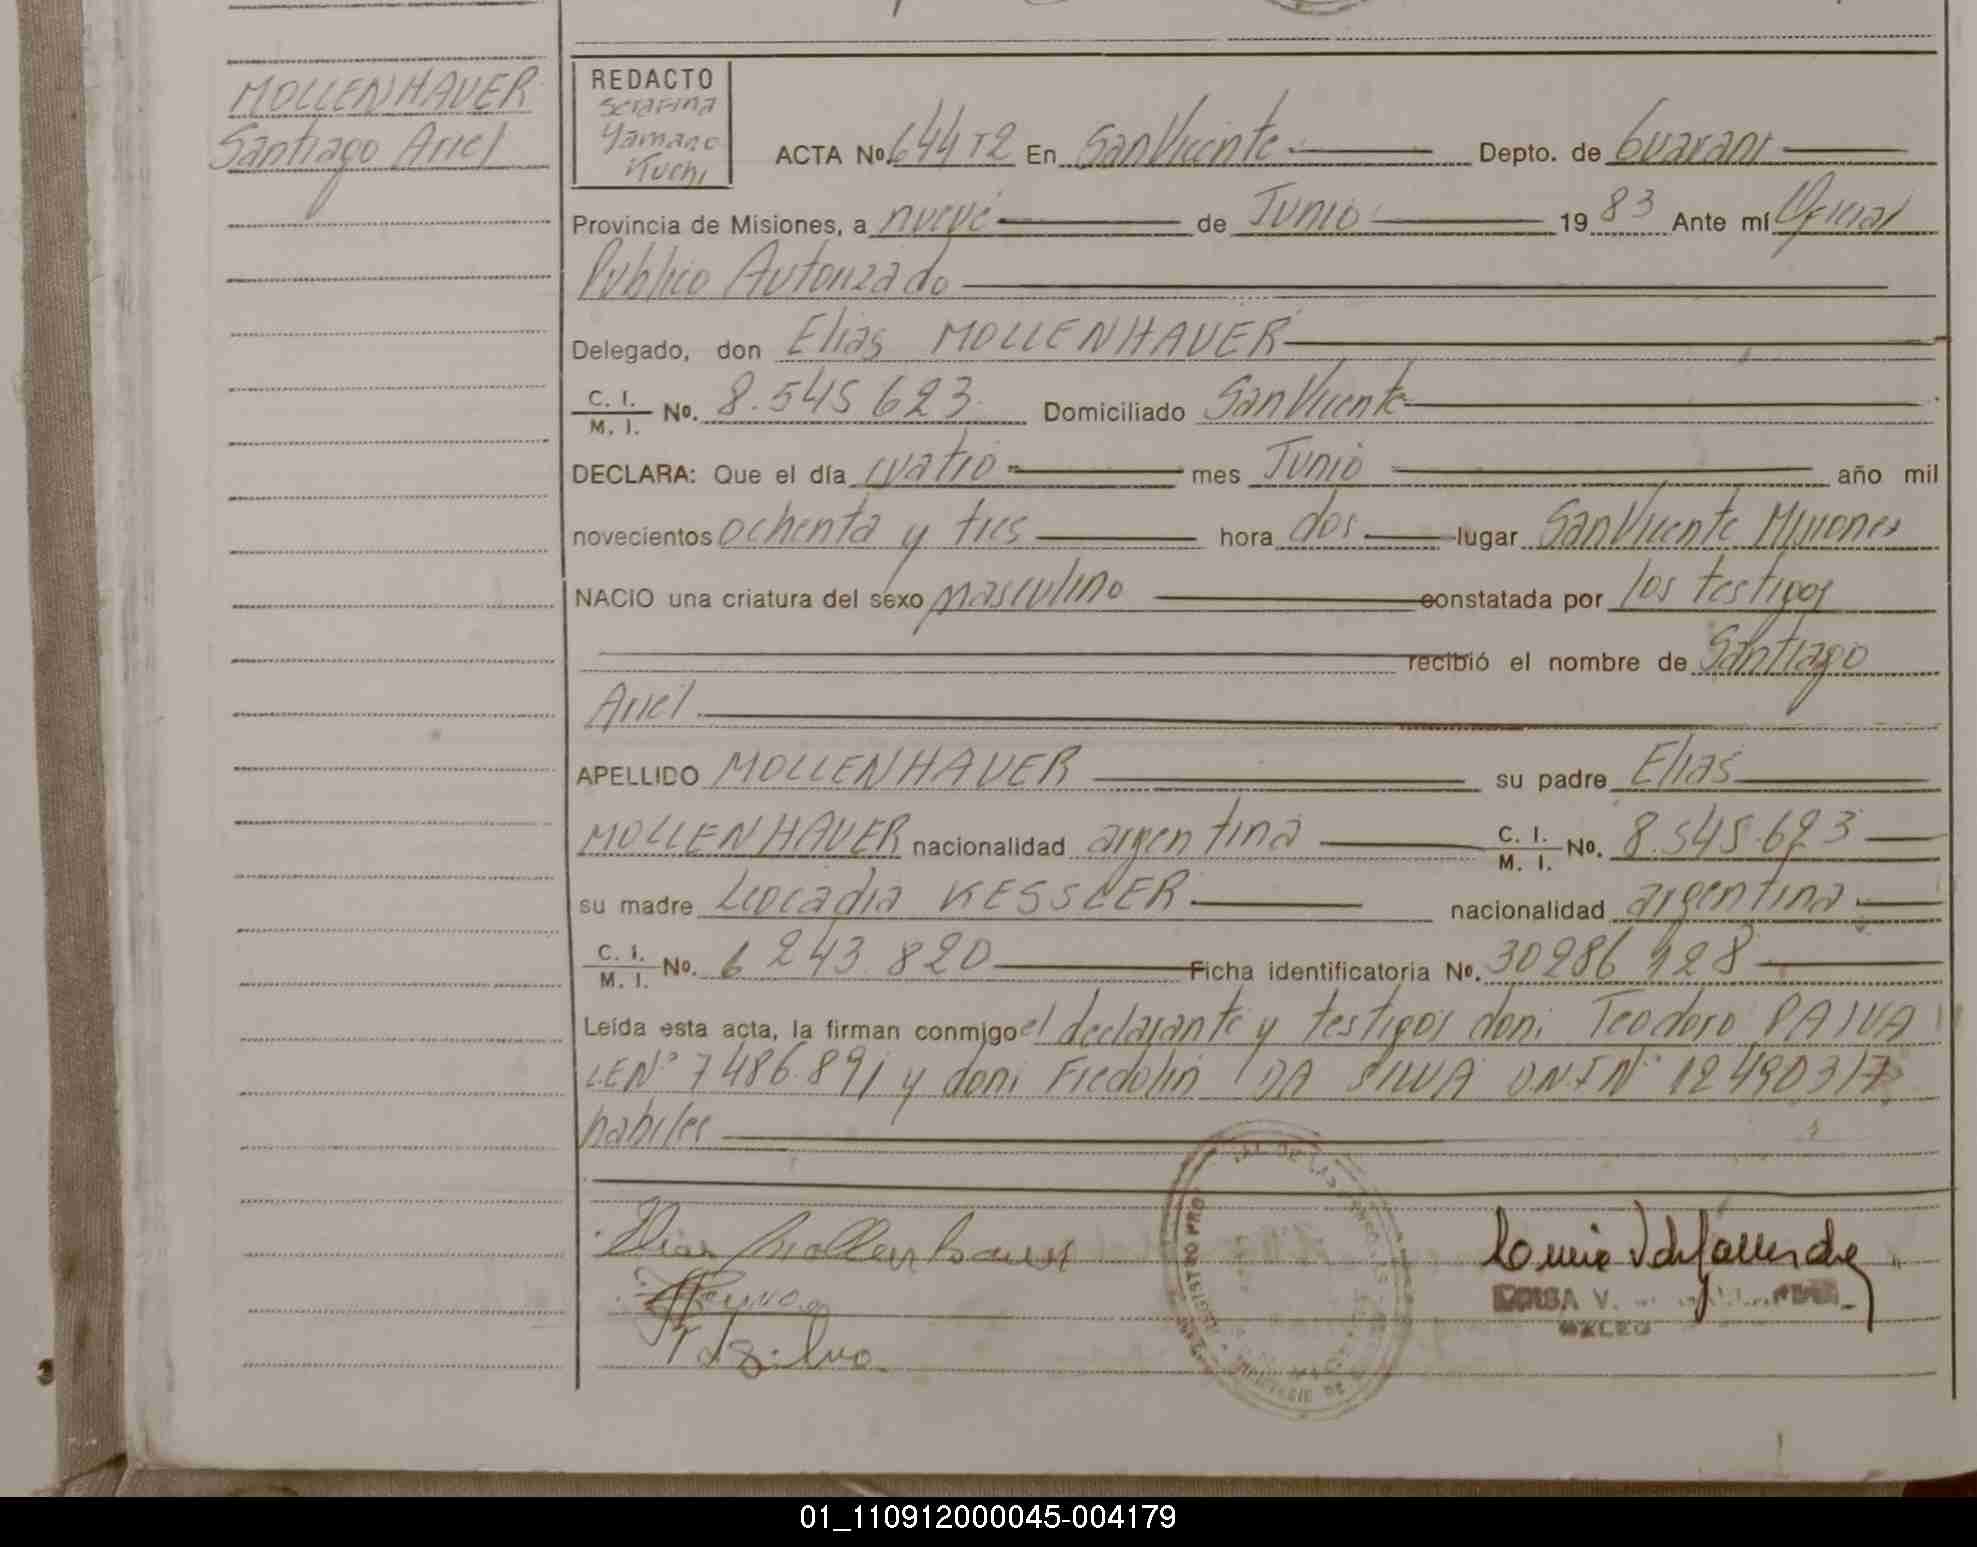 MOLLENHAUER
Santiago Ariel
REDACTO
Serafina
Yamano
Kuchi
ACTA Nº. 644 T2 En San Vicente Depto. de Guarani
Provincia de Misiones, a nueve de Junio 1983 Ante mí Oficial
Publico Autorizado
Delegado, don Elias MOLLENHAUER
C. I. / M. I. Nº. 8.545 623 Domiciliado San Vicente
DECLARA: Que el día cuatro mes Junio año mil
novecientos ochenta y tres hora dos lugar San Vicente Misiones
NACIO una criatura del sexo masculino constatada por los testigos
recibió el nombre de Santiago
Ariel
APELLIDO MOLLENHAUER su padre Elias
MOLLENHAUER nacionalidad argentina C. I. / M. I. Nº. 8.545.623
su madre Leocadia KESSLER nacionalidad argentina
C. I. / M. I. Nº. 6 243.820 Ficha identificatoria Nº. 30286 928
Leída esta acta, la firman conmigo el declarante y testigos don: Teodoro PAIVA
LE Nº 7486.891 y don: Fredolin DA SILVA D.N.I Nº 12490317
habiles
Elias Mollenhauer
F da Silva
REGISTRO PRO
AL DE LAS PERSONAS
V.
01_110912000045-004179